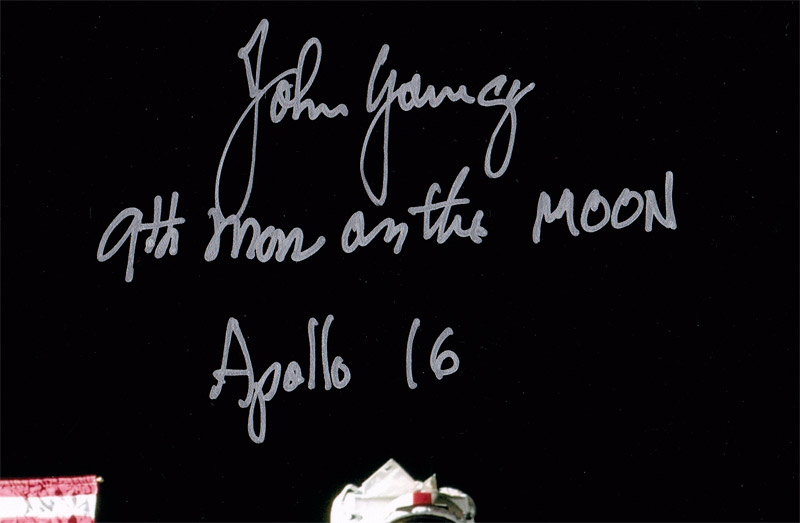 John Young
9th man on the MOON
Apollo 16